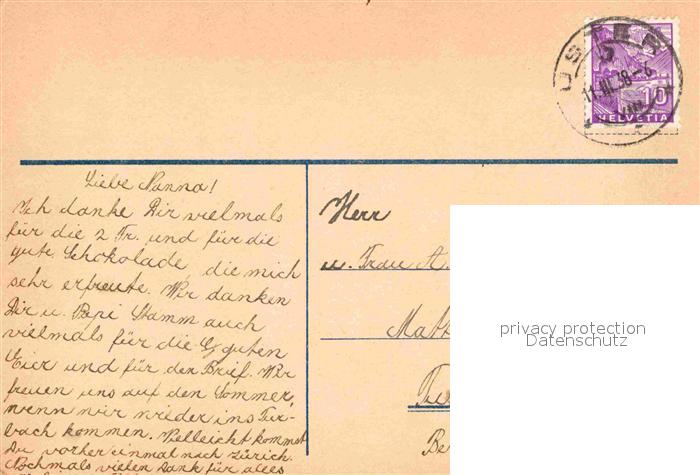 USTER
11.III.38-6
10
HELVETIA
Liebe Nanna!
Ich danke Dir vielmals
für die 2 Fr. und für die
gute Schokolade, die mich
sehr erfreute. Wir danken
Dir u. Stamm auch
vielmals für die guten
Eier und für den Brief. Wir
freuen uns auf den Sommer,
wenn wir wieder ins Tur-
bach kommen. Vielleicht kommst
Du vorher einmal nach Zürich.
Nochmals vielen Dank für alles
Herr
u. Frau A.
privacy protection
Datenschutz